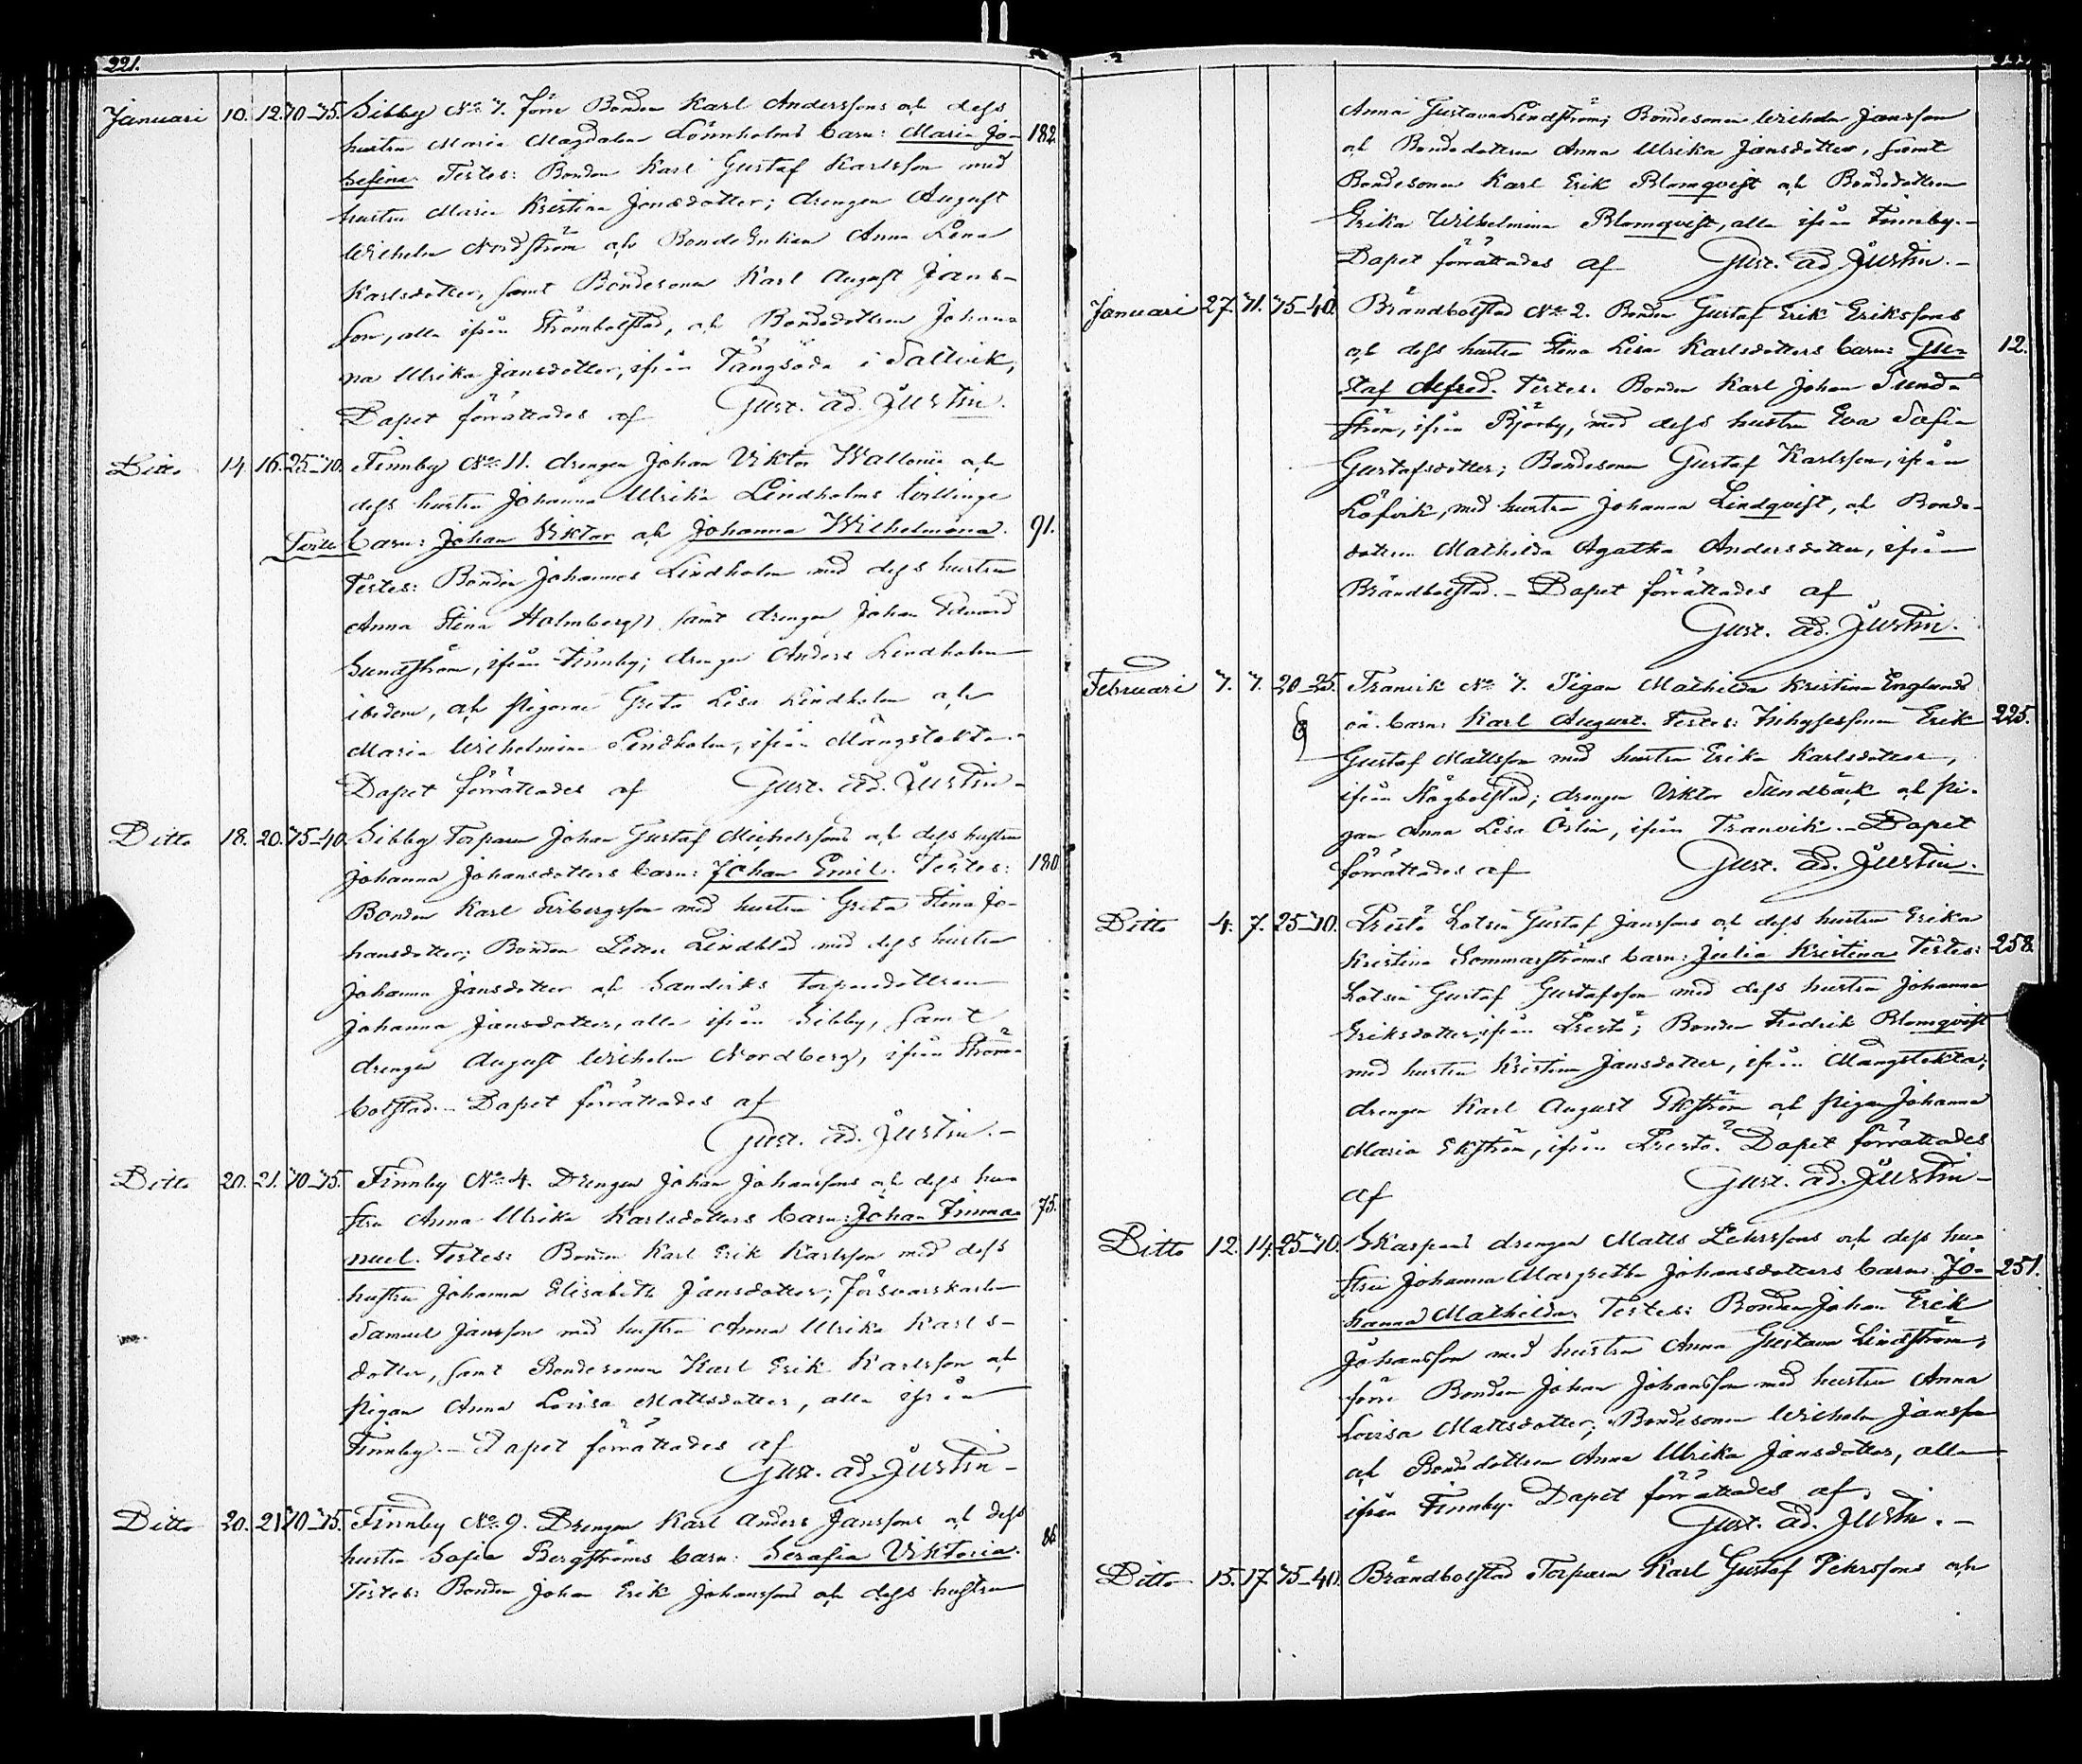 221.
Januari 10. 12. 70-75. Sibby No 7. Förre Bonden Karl Anderssons och dess
hustru Maria Magdalena Lönnholms barn: Maria Jo- 182.
sefina. Testes: Bonden Karl Gustaf Karlsson med
hustru Maria Kristina Jansdotter; drengen August
Wilhelm Nordström och Bonde Enkan Anna Lena
Karlsdotter, samt Bondesonen Karl August Jans-
son, alla ifrån Strömbolstad, och Bondedottren Johan-
na Ulrika Jansdotter, ifrån Tängsöda i Saltvik,
Dopet förrättades af Gust. Ad. Justin.
Ditto 14. 16. 25-70. Finnby No 11. drengen Johan Viktor och
dess hustru Johanna Ulrika Lindholms tvillinge
barn: Johan Viktor och Johanna Wilhelmina. 91.
Testes: Bonden Johannes Lindholm med dess hustru
Anna Stina Holmberg, samt drengen Johan Edvard
Sundström, ifrån Finnby; drengen Anders Lindholm
ibidem, och pigorne Greta Lisa Lindholm och
Maria Wilhelmina Lindholm, ifrån Mångstekta.
Dopet förrättades af Gust. Ad. Justin.
Ditto 18. 20. 75-40. Sibby Torparen Johan Gustaf Michelssons och dess hustru
Johanna Johansdotters barn: Johan Emil. Testes: 180
Bonden Karl med hustru Greta Stina Jo-
hansdotter; Bonden Petter Lindblad med dess hustru
Johanna Jansdotter och Sandviks Torparedottren
Johanna Jansdotter, alla ifrån Sibby, samt
drengen August Wilhelm Nordberg, ifrån Ström-
bolstad. - Dopet förrättades af
Gust. Ad. Justin. -
Ditto 20. 21. 70-75. Finnby No 4. Drengen Johan Johanssons och dess hu-
stru Anna Ulrika Karlsdotters barn: Johan Imma- 75.
nuel. Testes: Bonden Karl Erik Karlsson med dess
hustru Johanna Elisabeth Jansdotter; Försvarskarlen
Samuel Jansson med hustru Anna Ulrika Karls-
dotter, samt Bondesonen Karl Erik Karlsson och
pigan Anna Lovisa Mattsdotter, alla ifrån
Finnby. - Dopet förrättades af
Gust. Ad. Justin -
Ditto 20. 21. 70-75. Finnby No 9. Drengen Karl Anders Janssons och dess
hustru Sofia Bergströms barn: Serafia Viktoria. 86
Testes: Bonden Johan Erik Johansson och dess hustru
Anna Gustava Lindström; Bondesonen Wilhelm Jansson
och Bondedottren Anna Ulrika Jansdotter, samt
Bondesonen Karl Erik Blomqvist och Bondedottren
Erika Wilhelmina Blomqvist, alla ifrån Finnby. -
Dopet förrättades af Gust. Ad. Justin. -
Januari 27. 31. 75-40. Brändbolstad No 2. Bonden Gustaf Erik Erikssons
och dess hustru Stina Lisa Karlsdotters barn: Gu- 12.
staf Alfred. Testes: Bonden Karl Johan Sund-
ström, ifrån Björby, med dess hustru Eva Sofia
Gustafsdotter; Bondesonen Gustaf Karlsson, ifrån
Löfvik, med hustru Johanna Lindqvist, och Bonde-
dottren Mathilda Agatha Andersdotter, ifrån
Brändbolstad. - Dopet förrättades af
Gust. Ad. Justin.
Februari 7. 7. 20-25. Tranvik No 7. Pigan Mathilda Kristina Englunds
oä. barn: Karl August. Testes: Erik 225.
Gustaf Mattsson med hustru Erika Karlsdotter,
ifrån Högbolstad; drengen Viktor Sundbäck och pi-
gan Anna Lisa Öslin, ifrån Tranvik. - Dopet
förrättades af Gust. Ad. Justin.
Ditto 4. 7. 25-70. Prestö Lotsen Gustaf Janssons och dess hustru Erika
Kristina Sommarströms barn: Julia Kristina. Testes: 258.
Lotsen Gustaf Gustafsson med dess hustru Johanna
Eriksdotter, ifrån Prestö; Bonden Fredrik Blomqvist
med hustru Kristina Jansdotter, ifrån Mångstekta;
drengen Karl August Ekström och pigan Johanna
Maria Ekström, ifrån Prestö. Dopet förrättades
af Gust. Ad. Justin -
Ditto 12. 14. 25-70. Skarpans drengen Matts Pehrssons och dess hu-
stru Johanna Margretha Johansdotters barn: Jo- 251.
hanna Mathilda. Testes: Bonden Johan Erik
Johansson med hustru Anna Gustava Lindström;
förre Bonden Johan Johansson med hustru Anna
Lovisa Mattsdotter; Bondesonen Wilhelm Jansson
och Bondedottren Anna Ulrika Jansdotter, alla
ifrån Finnby. Dopet förrättades af
Gust. Ad. Justin. -
Ditto 15. 17. 75-40. Brändbolstad Torparen Karl Gustaf Pehrssons och